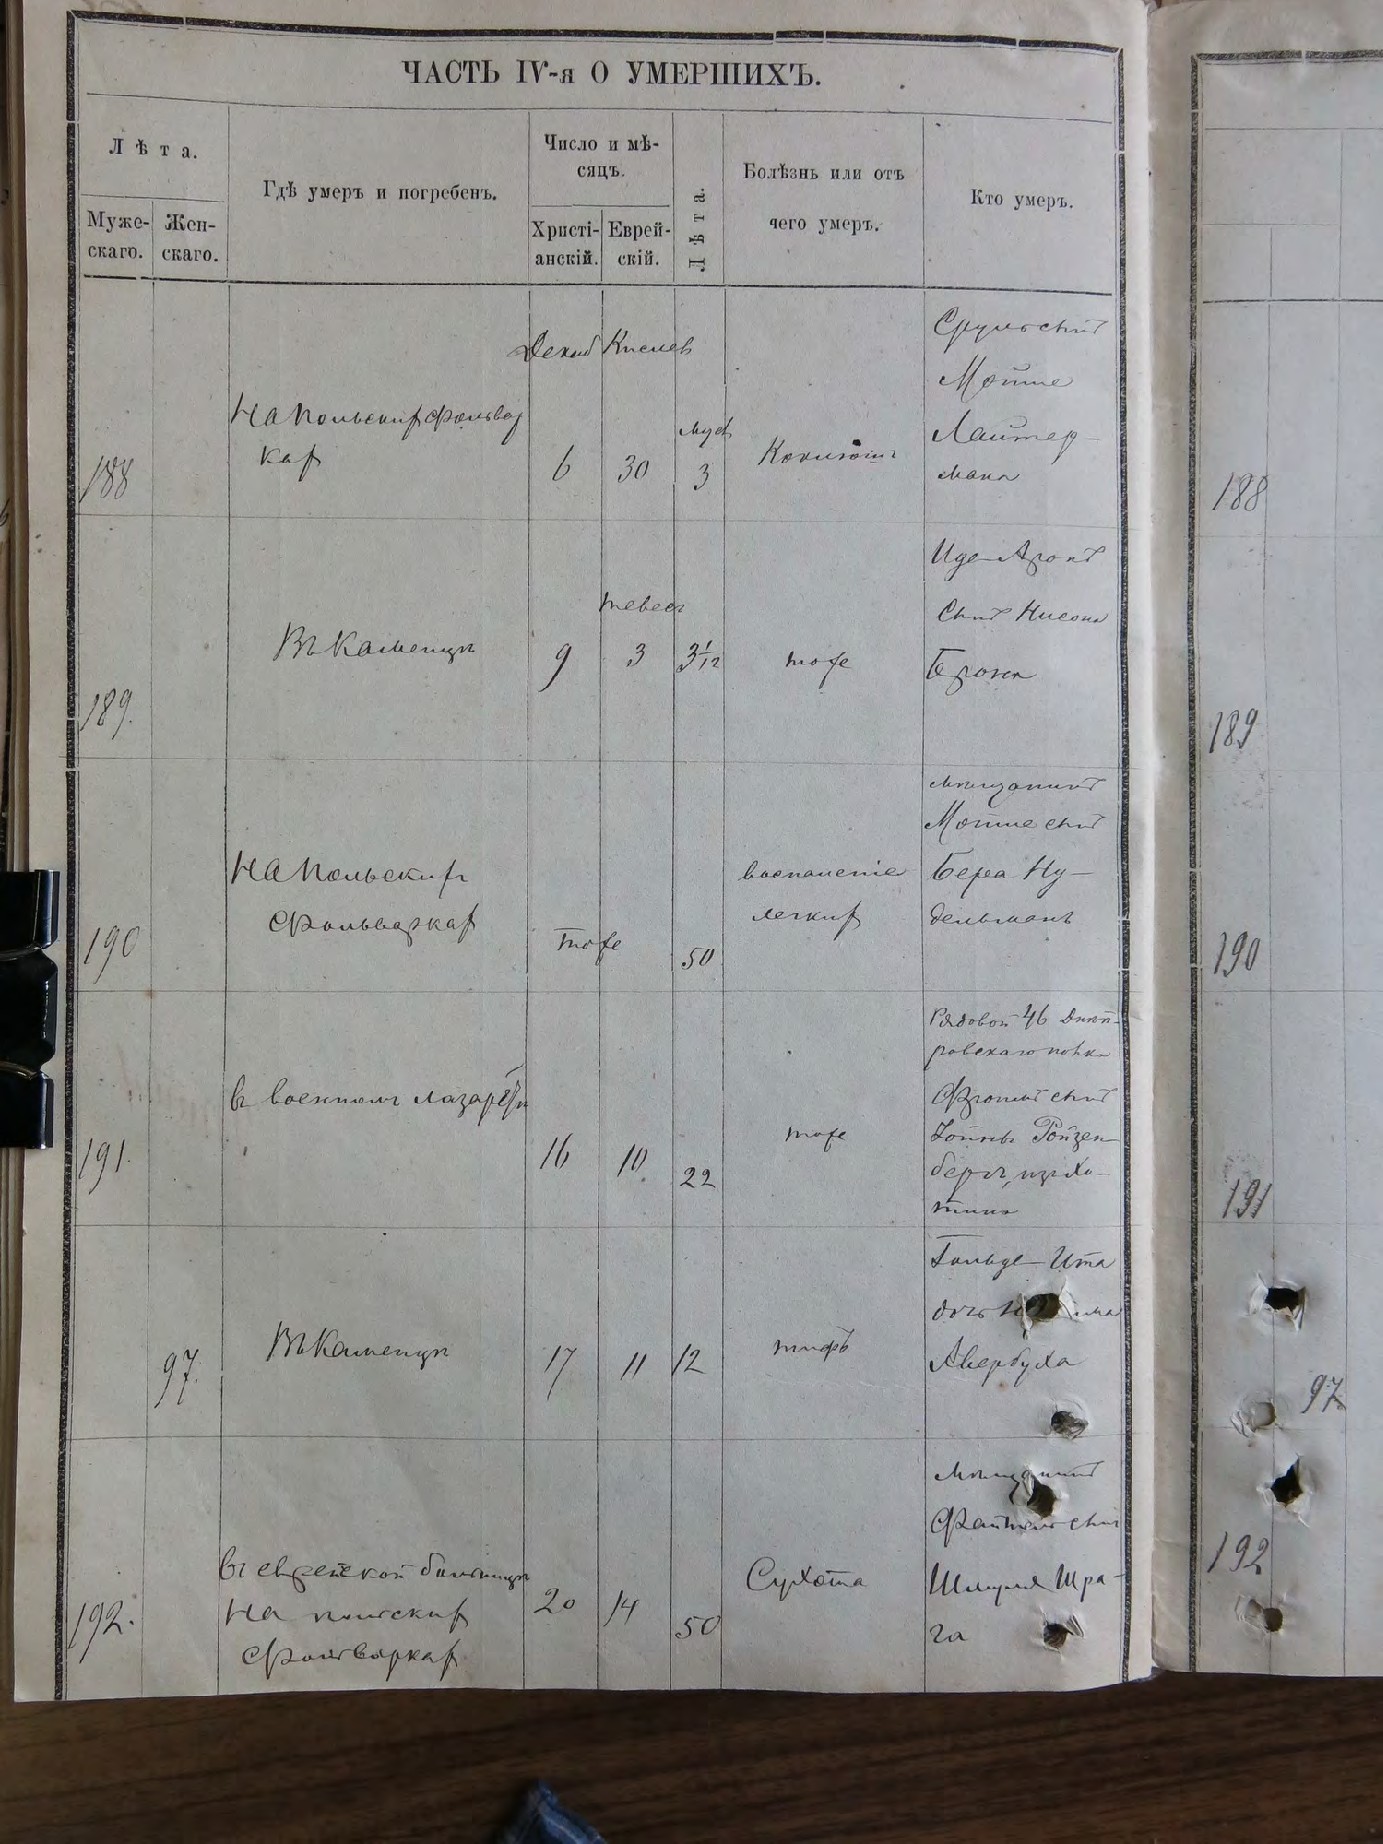 ЧАСТЬ IV-я О УМЕРШИХЪ.
Лѣта.
Муже-
скаго.
Жен-
скаго.
Гдѣ умеръ и погребенъ.
Число и мѣ-
сяцъ.
Христі-
анскій.
Еврей-
скій.
Лѣта.
Болѣзнь или отъ
чего умеръ.
Кто умеръ.
188
На польских фольвар
ках
Декаб
6
Кислев
30
3
Коклюшъ
Сруль
Лайтер-
мана
189.
Въ Каменцѣ
9
тевес
3
3 1/12
тоже
Иде Арон
сынъ Нисона
190
На польских
фольварках
тоже
50
воспаленіе
легких
мѣщанинъ
Мошке сынъ
Бера Ну-
дельманъ
191.
въ военномъ лазаретѣ
16
10
22
тоже
Рядовой 46 Днѣп-
ровскаго полка
сынъ
Ройзен-
бергъ, изъ Хо-
тина
97.
Въ Каменцѣ
17
11
12
тифъ
Гольде Ита
дочь
Авербуха
192.
въ еврейской больницѣ
на польских
фольварках
20
14
50
Сухота
мѣщанинъ
Файтель сынъ
Шмуля Шра-
га
188
189
190
191
97
192